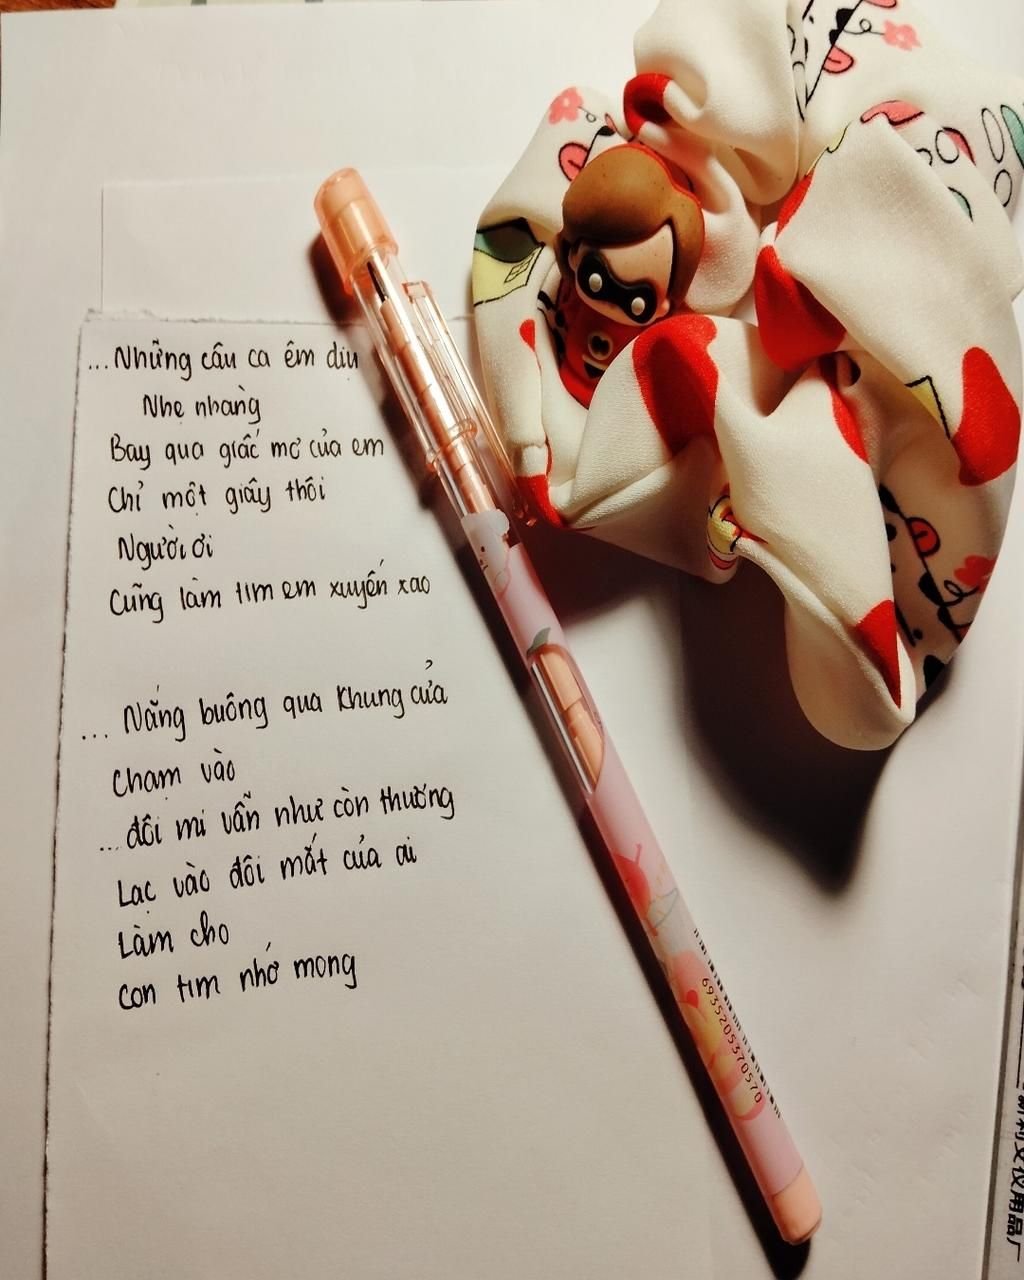 ...Những câu ca êm dịu
Nhẹ nhàng
Bay qua giấc mơ của em
Chỉ một giây thôi
Người ơi
Cũng làm tim em xuyến xao
... Nắng buông qua khung cửa
Chạm vào
...đôi mi vẫn như còn thương
Lạc vào đôi mắt của ai
Làm cho
con tim nhớ mong
6935205370570